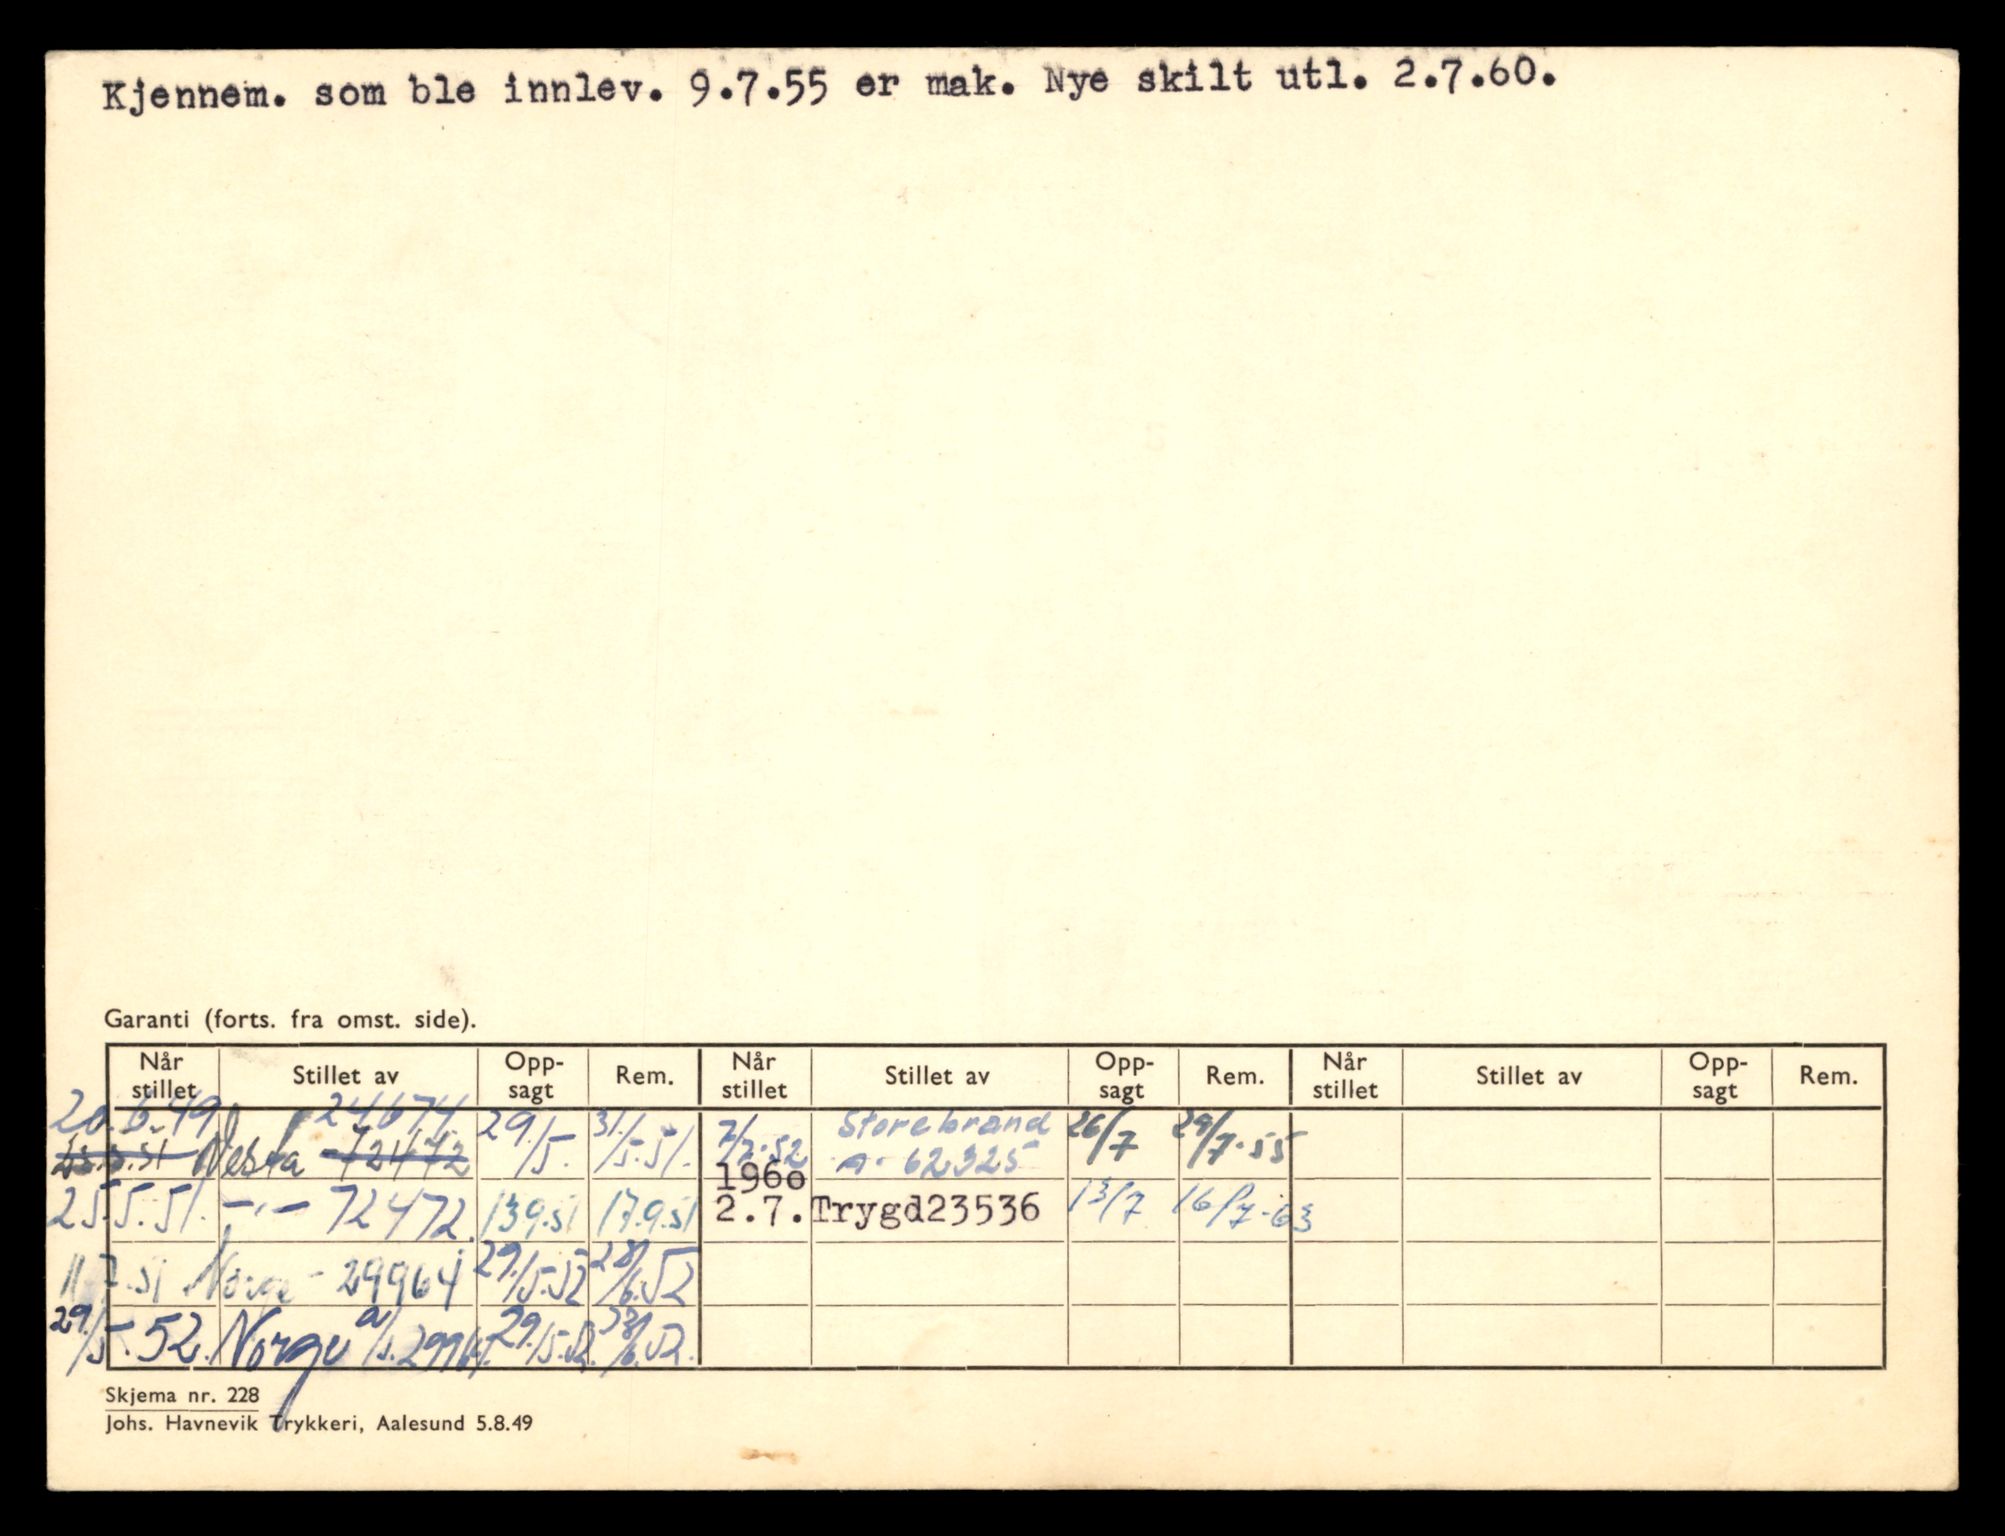 Kjennem. som ble innlev. 9.7.55 er mak. Nye skilt utl. 2.7.60.
Garanti (forts. fra omst. side).
Når stillet Stillet av Opp-sagt Rem. Når stillet Stillet av Opp-sagt Rem. Når stillet Stillet av Opp-sagt Rem.
20.6.49 24674 29/5. 31/5.51. 7/7.52 Storebrand 26/7 29/7.55
25.5.51 Vesta 72472 62325
1960
25.5.51. -"- 72472. 13.9.51 17.9.51 2.7. Trygd23536 13/7 16/7-63
11.7.51 Norge - 29964 29./5.52 28/6.52
29./5.52. Norge a/s. 29964. 29./5.52. 28/6.52.
Skjema nr. 228
Johs. Havnevik Trykkeri, Aalesund 5.8.49